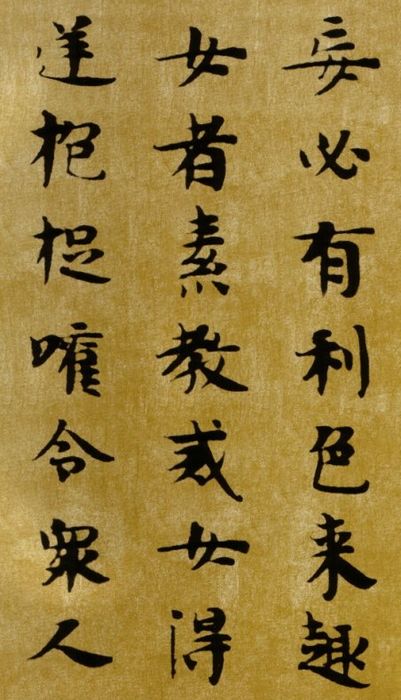 妄必有利色来趣
女者素教戒女得
逆抱捉嚾令衆人